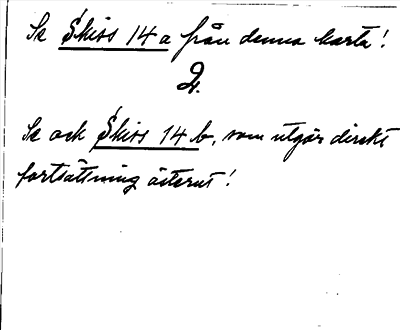 Se Skiss 14 a från denna karta!
2.
Se och Skiss 14 b, som utgör direkt
fortsättning österut!